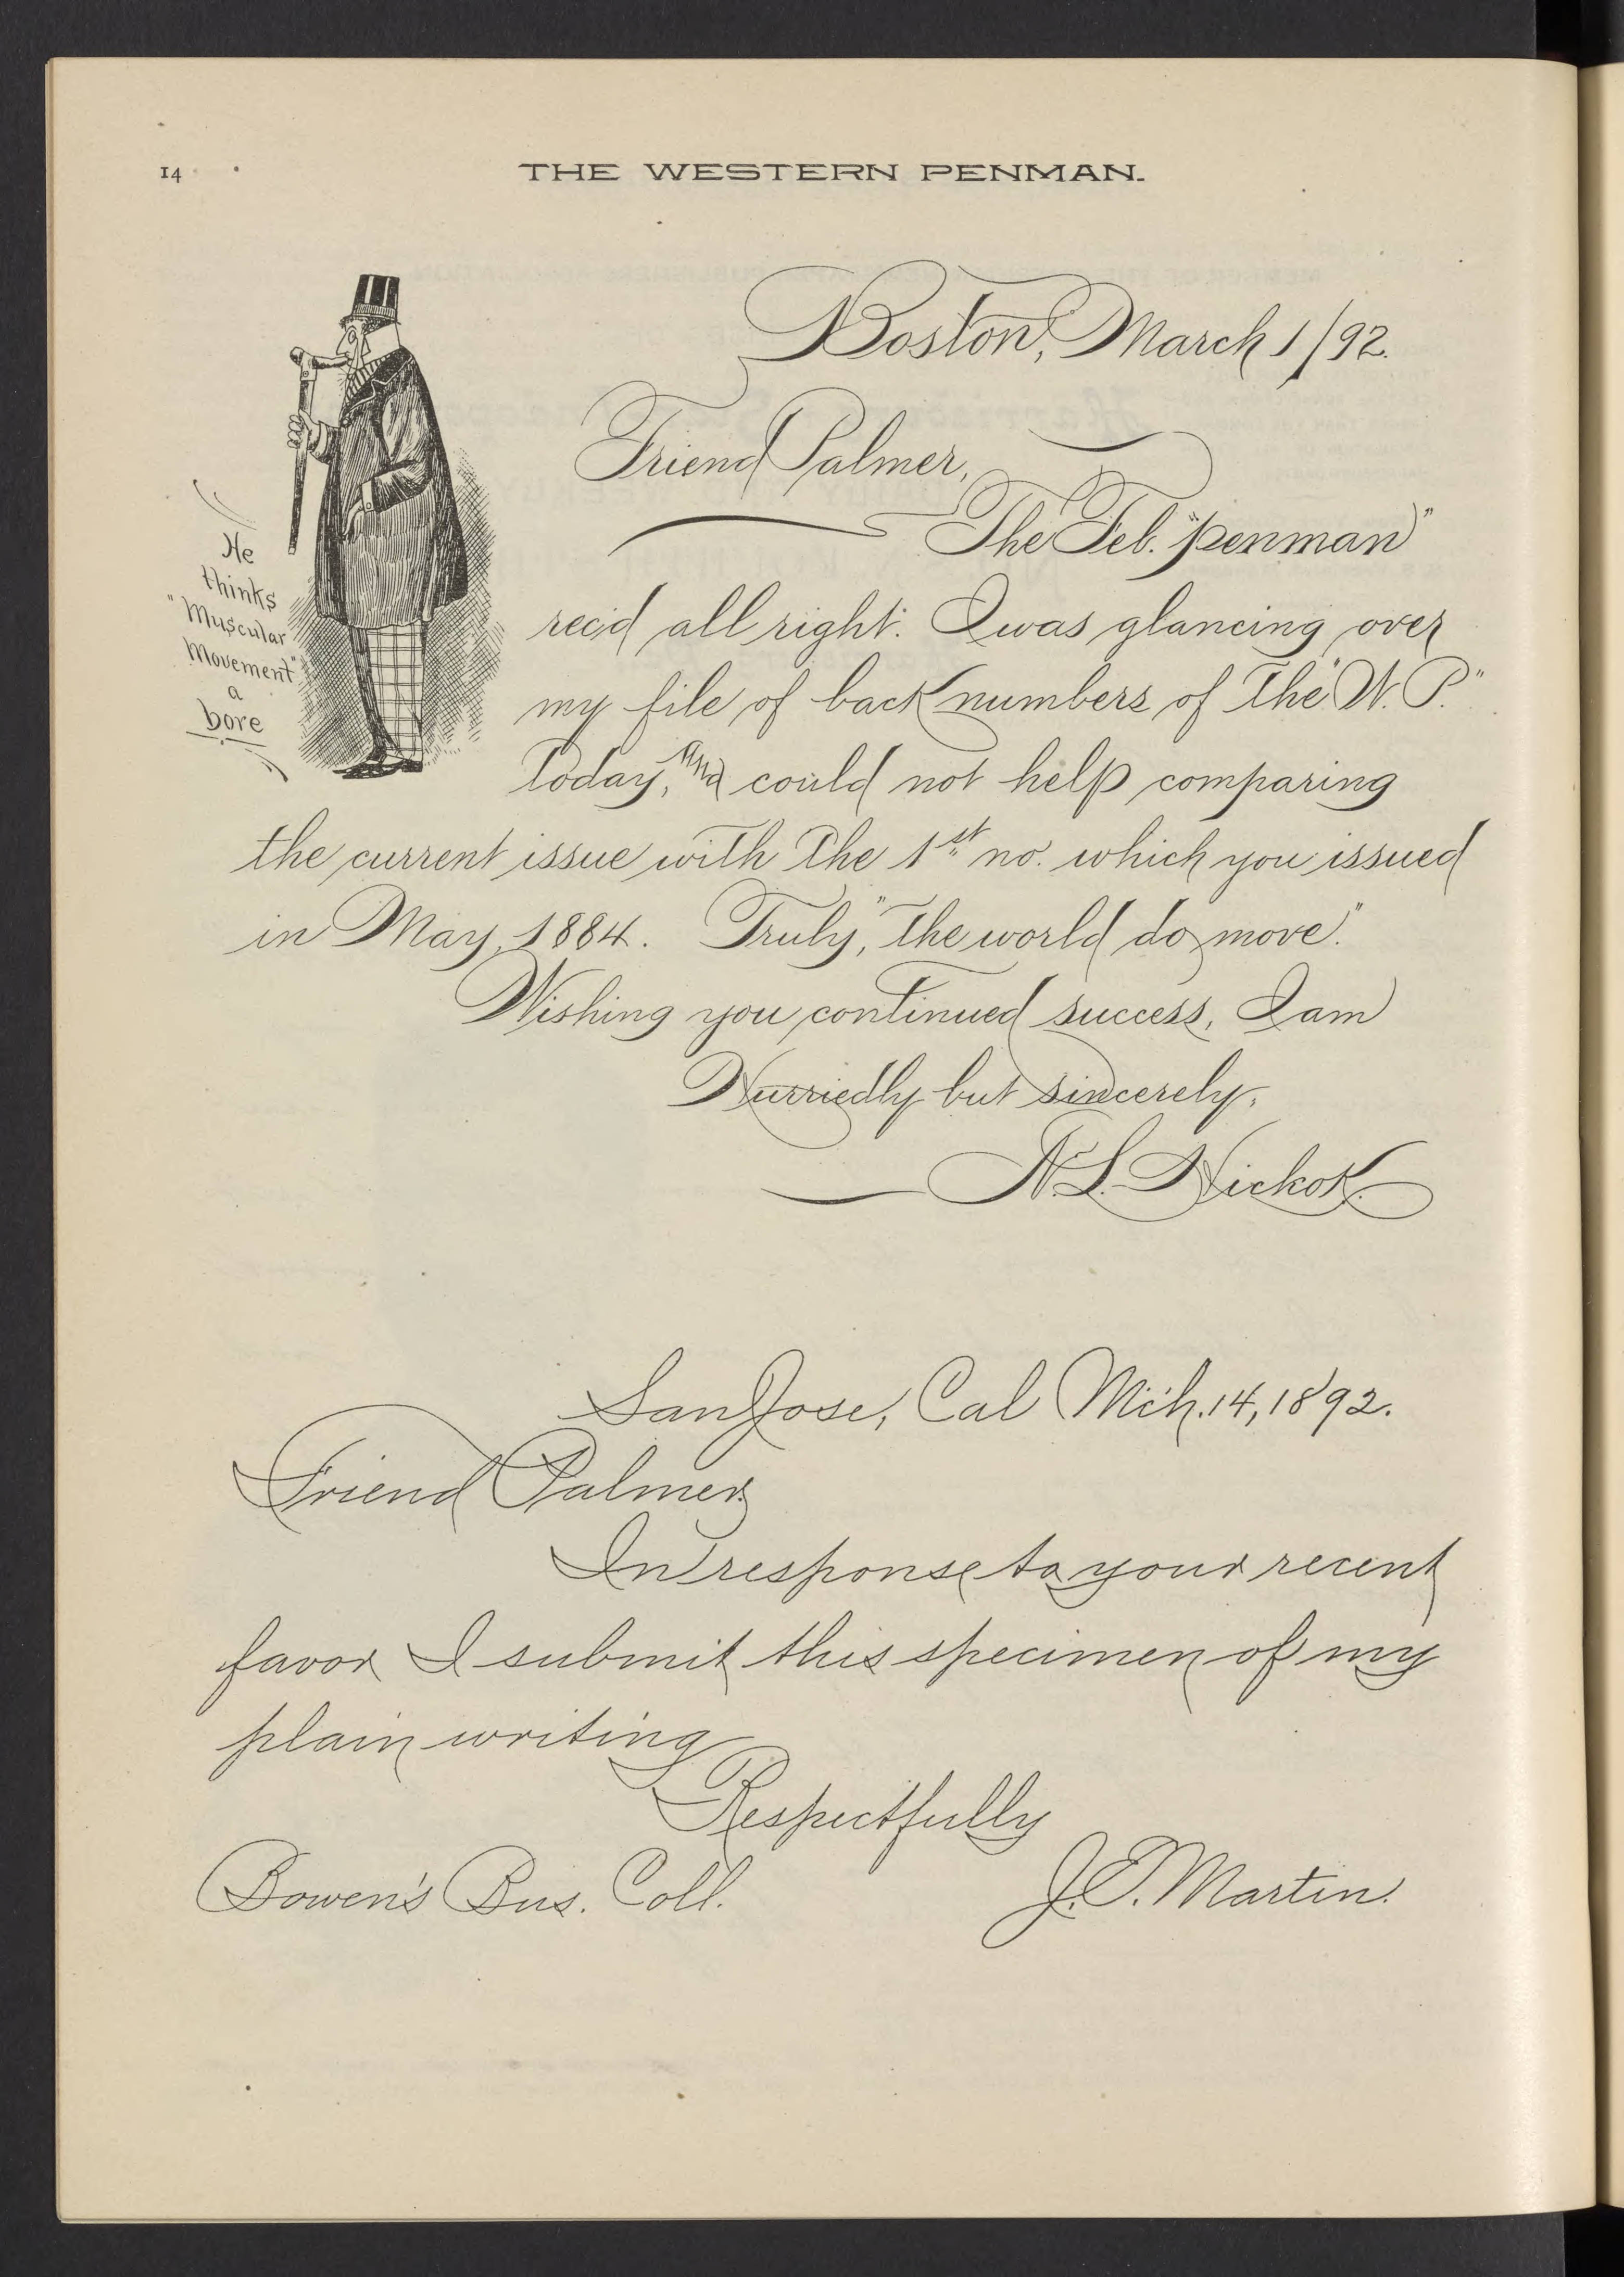 14
THE WESTERN PENMAN.
Boston, March 1/92.
Friend Palmer,
The Feb. "penman"
rec'd all right. I was glancing over
my file of back numbers of The "W. P."
today, and could not help comparing
the current issue with the 1st no. which you issued
in May, 1884. Truly, "the world do move."
Wishing you continued success, I am
Hurriedly but sincerely,
A. L. Hickok.
He
thinks
"Muscular
Movement"
a
bore
San Jose, Cal Mch. 14, 1892.
Friend Palmer,
In response to your recent
favor I submit this specimen of my
plain writing
Respectfully
Bowen's Bus. Coll. J. E. Martin.